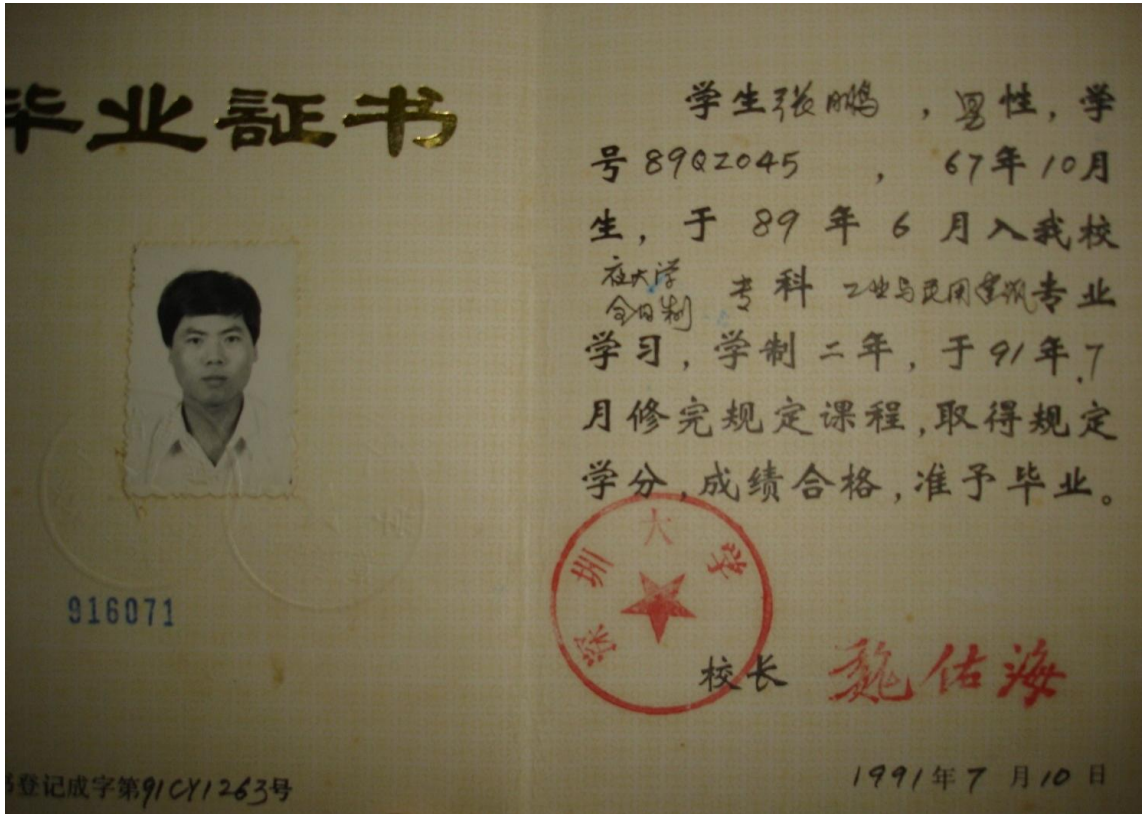 毕业証书
916071
登记成字第91CY1263号
学生张鹏，男性，学
号89QZ045，67年10月
生，于89年6月入我校
夜大学
全日制
专科 工业与民用建筑专业
学习，学制二年，于91年7
月修完规定课程，取得规定
学分，成绩合格，准予毕业。
深圳大学
校长 魏佑海
1991年7月10日